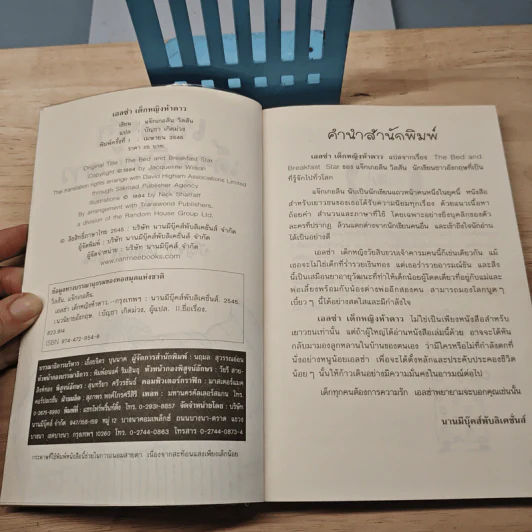 เอลซ่า เด็กหญิงห้าดาว
เขียน : แจ๊กเกอลีน วิลสัน
แปล : ปัญชา เกิดม่วง
พิมพ์ครั้งที่ 1 : เมษายน 2546
ราคา 115 บาท
Original Title : The Bed and Breakfast Star
Copyright © 1994 by Jacqueline Wilson
The translation rights arrange with David Higham Associates Limited
through Silkroad Publisher Agency
Illustrations © 1994 by Nick Sharratt
By arrangement with Transworld Publishers,
a division of the Random House Group Ltd.
© ลิขสิทธิ์ภาษาไทย 2546 : บริษัท นานมีบุ๊คส์พับลิเคชั่นส์ จำกัด
ผู้จัดพิมพ์ : บริษัท นานมีบุ๊คส์พับลิเคชั่นส์ จำกัด
ผู้จัดจำหน่าย : บริษัท นานมีบุ๊คส์ จำกัด
www.nanmeebooks.com
ข้อมูลทางบรรณานุกรมของหอสมุดแห่งชาติ
วิลสัน, แจ๊กเกอลีน
เอลซ่า เด็กหญิงห้าดาว.--กรุงเทพฯ : นานมีบุ๊คส์พับลิเคชั่นส์, 2546.
1.นวนิยายอังกฤษ. I.ปัญชา เกิดม่วง, ผู้แปล. II.ชื่อเรื่อง.
823.914
ISBN 974-472-654-6
กระดาษที่ใช้พิมพ์หนังสือนี้ช่วยในการถนอมสายตา เนื่องจากสะท้อนแสงเพียงเล็กน้อย
คำนำสำนักพิมพ์
เอลซ่า เด็กหญิงห้าดาว แปลจากเรื่อง The Bed and
Breakfast Star ของ แจ๊กเกอลีน วิลสัน นักเขียนชาวอังกฤษที่เป็น
ที่รู้จักไปทั่วโลก
แจ๊กเกอลีน นับเป็นนักเขียนแถวหน้าคนหนึ่งในยุคนี้ หนังสือ
สำหรับเยาวชนของเธอได้รับความนิยมทุกเรื่อง ด้วยแนวเนื้อหา
ถ้อยคำ สำนวนและภาษาที่ใช้ โดยเฉพาะอย่างยิ่งบุคลิกของตัว
ละครที่ปรากฏ ล้วนแตกต่างจากนักเขียนคนอื่น และเข้าถึงใจนักอ่าน
ได้เป็นอย่างดี
เอลซ่า เด็กหญิงวัยสิบขวบเจ้าอารมณ์คนนี้ก็เช่นเดียวกัน แม้
เธอจะไม่ใช่เด็กที่ร่ำรวยเงินทอง แต่เธอร่ำรวยอารมณ์ขัน และสิ่ง
นี้เป็นเสมือนยาอายุวัฒนะที่ทำให้เด็กน้อยผู้โดดเดี่ยวที่อยู่กับแม่และ
พ่อเลี้ยงพร้อมกับน้องต่างพ่ออีกสองคน สามารถมองโลกบูด ๆ
เบี้ยว ๆ นี้ได้อย่างสดใสและมีกำลังใจ
เอลซ่า เด็กหญิงห้าดาว ไม่ใช่เป็นเพียงหนังสือสำหรับ
เยาวชนเท่านั้น แต่ถ้าผู้ใหญ่ได้อ่านหนังสือเล่มนี้ด้วย อาจจะได้หัน
กลับมามองลูกหลานในบ้านของตนเอง ว่ามีใครหรือไม่ที่กำลังตกที่
นั่งอย่างหนูน้อยเอลซ่า เพื่อจะได้ตั้งหลักและประคับประคองชีวิต
น้อย ๆ นั้นให้ก้าวเดินอย่างมีความมั่นคงในอารมณ์ต่อไป
เด็กทุกคนต้องการความรัก เอลซ่าพยายามจะบอกคุณเช่นนั้น
นานมีบุ๊คส์พับลิเคชั่นส์